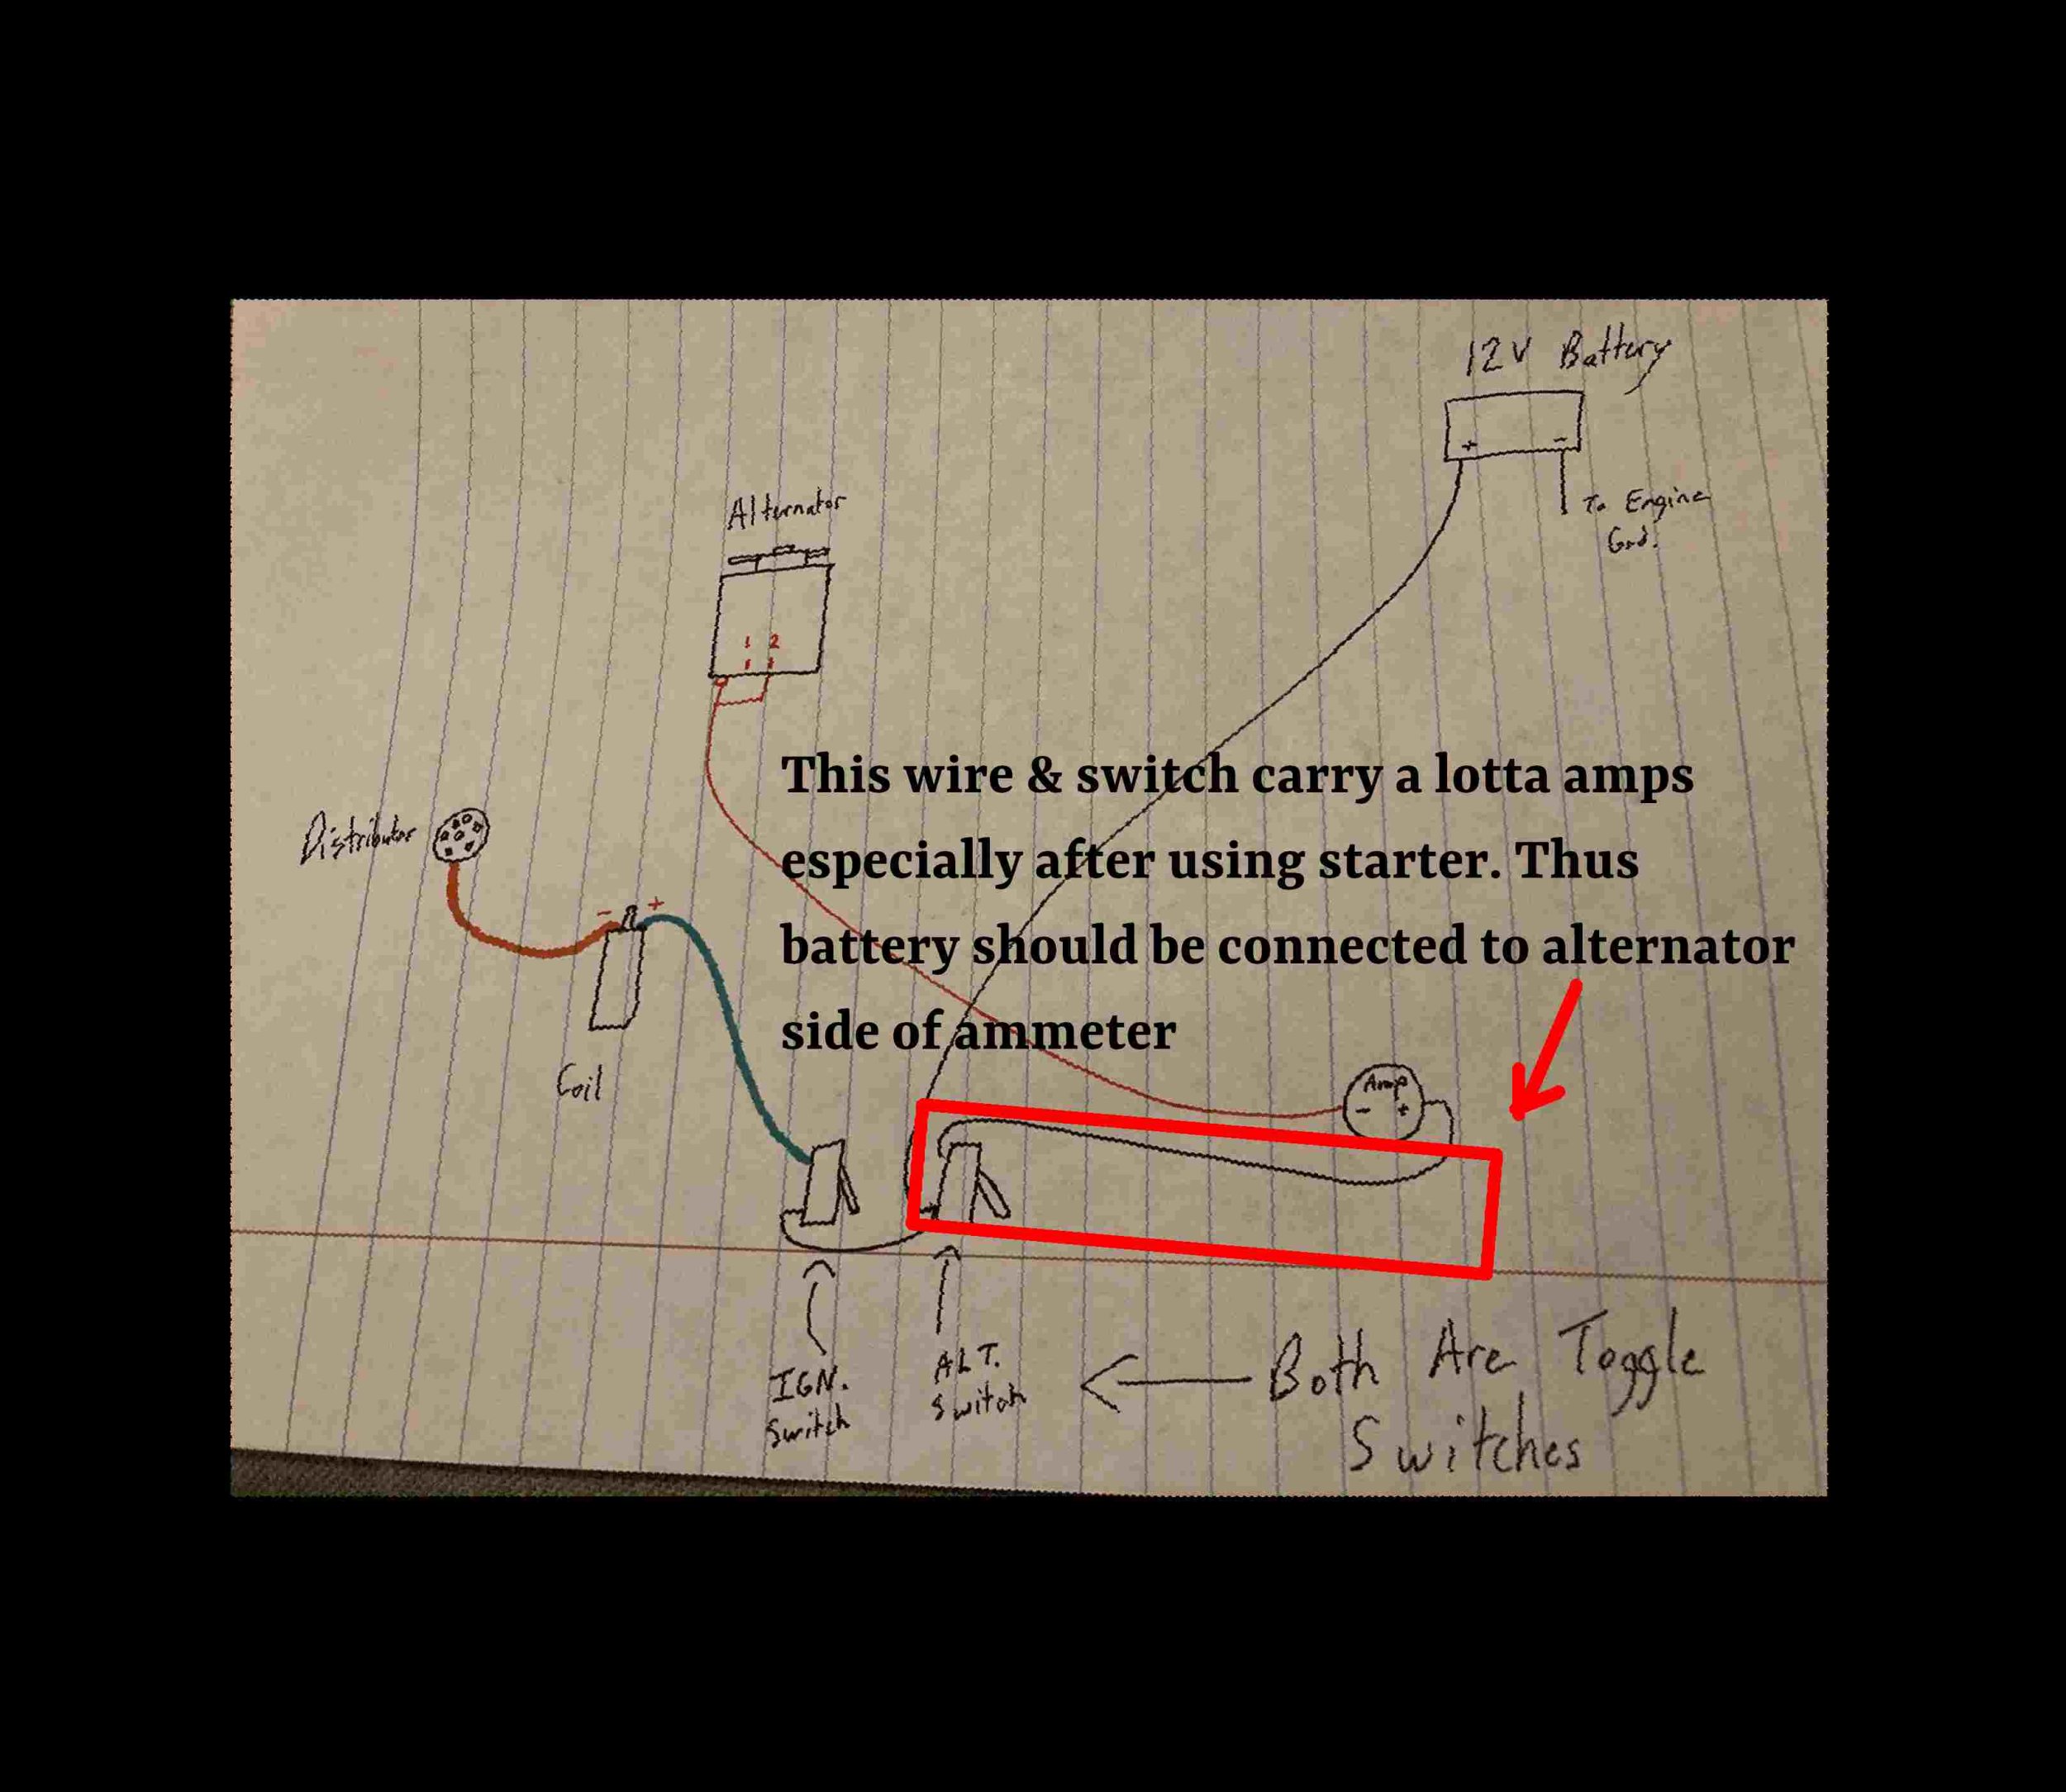 12V Battery
+ -
To Engine
Gnd.
Alternator
1 2
This wire & switch carry a lotta amps
especially after using starter. Thus
battery should be connected to alternator
side of ammeter
Distributor
- +
Coil
Amp
- +
IGN.
Switch
ALT.
Switch
Both Are Toggle
Switches